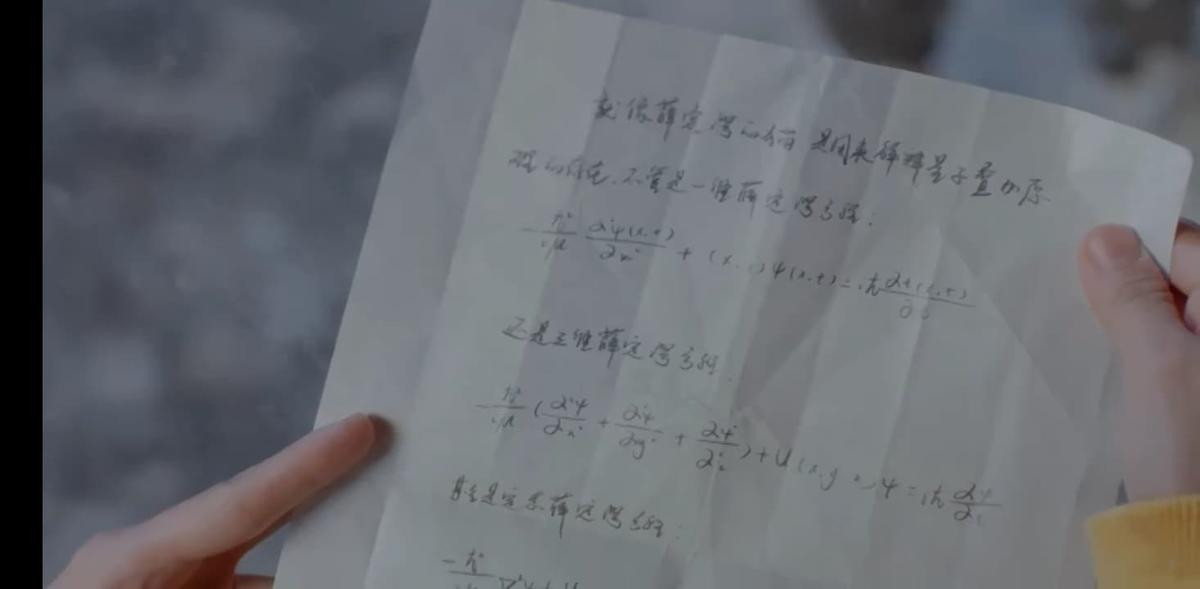 就像薛定谔的猫 是用来解释量子叠加原
理的存在，不管是一维薛定谔方程：
-ħ²/2μ ∂²ψ(x,t)/∂x² + U(x,t)ψ(x,t)=iħ ∂ψ(x,t)/∂t
还是三维薛定谔方程.
-ħ²/2μ (∂²ψ/∂x² + ∂²ψ/∂y² + ∂²ψ/∂z²)+U(x,y,z)ψ=iħ ∂ψ/∂t
甚至是定态薛定谔方程：